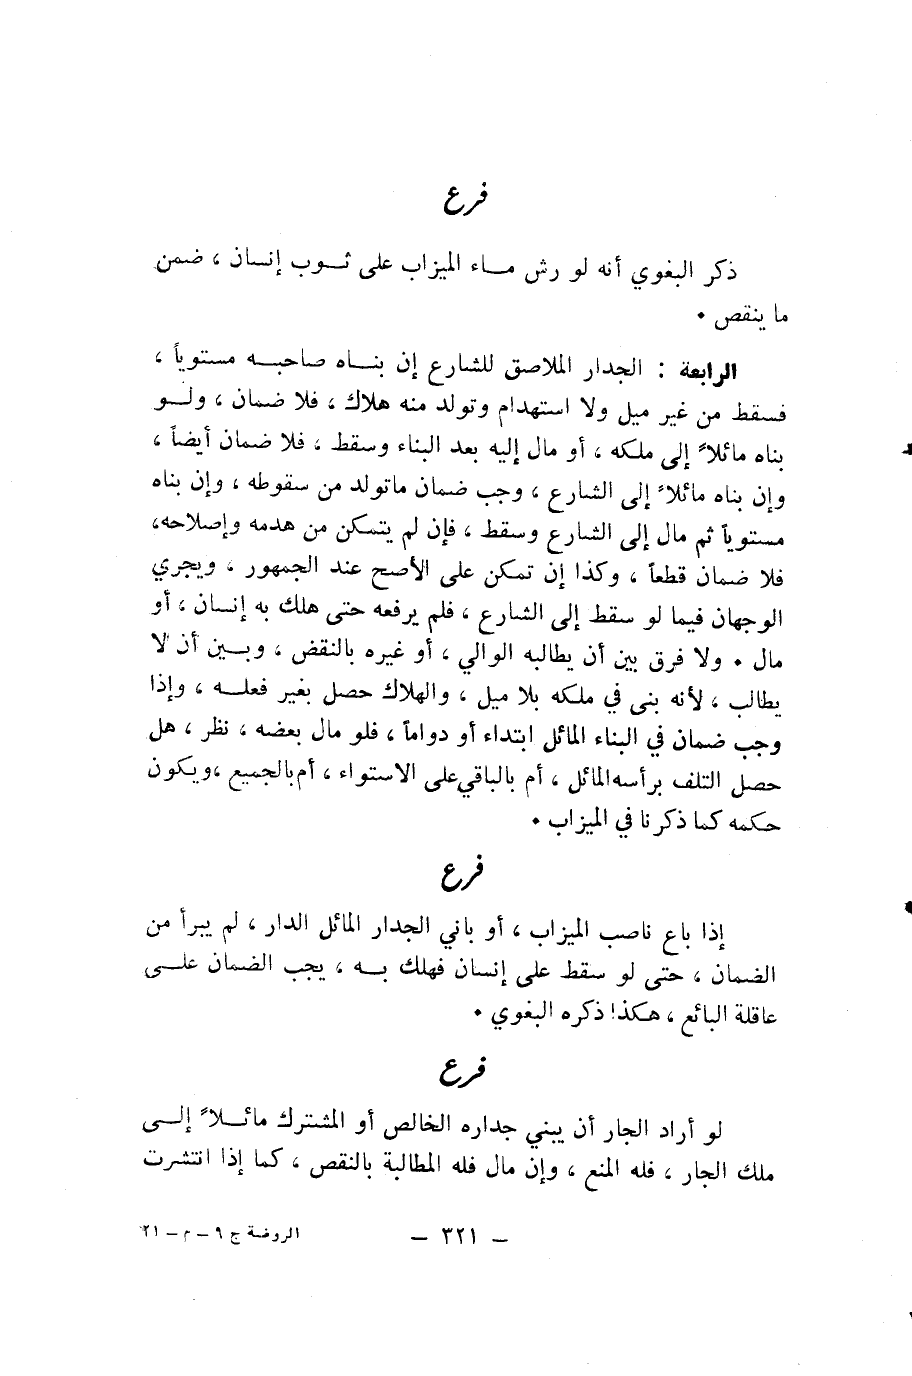 فرع
ذكر البغوي أنه لو رش مــاء الميزاب على ثــوب إنسان ، ضمن
ما ينقص .
الرابعة : الجدار الملاصق للشارع إن بنــاه صاحبــه مستوياً ،
فسقط من غير ميل ولا استهدام وتولد منه هلاك ، فلا ضمان ، ولــو
بناه مائلاً إلى ملكه ، أو مال إليه بعد البناء وسقط ، فلا ضمان أيضاً ،
وإن بناه مائلاً إلى الشارع ، وجب ضمان ماتولد من سقوطه ، وإن بناه
مستوياً ثم مال إلى الشارع وسقط ، فإن لم يتمكن من هدمه وإصلاحه،
فلا ضمان قطعاً ، وكذا إن تمكن على الأصح عند الجمهور ، ويجري
الوجهان فيما لو سقط إلى الشارع ، فلم يرفعه حتى هلك به إنسان ، أو
مال . ولا فرق بين أن يطالبه الوالي ، أو غيره بالنقض ، وبــين أن لا
يطالب ، لأنه بنى في ملكه بلا ميل ، والهلاك حصل بغير فعلــه ، وإذا
وجب ضمان في البناء المائل ابتداء أو دواماً ، فلو مال بعضه ، نظر ، هل
حصل التلف برأسه المائل ، أم بالباقي على الاستواء ، أم بالجميع ،ويكون
حكمه كما ذكرنا في الميزاب .
فرع
إذا باع ناصب الميزاب ، أو باني الجدار المائل الدار ، لم يبرأ من
الضمان ، حتى لو سقط على إنسان فهلك بــه ، يجب الضمان علــى
عاقلة البائع ، هكذا ذكره البغوي .
فرع
لو أراد الجار أن يبني جداره الخالص أو المشترك مائــلاً إلــى
ملك الجار ، فله المنع ، وإن مال فله المطالبة بالنقص ، كما إذا انتشرت
— ٣٢١ —
الروضة ج ٩ – م – ٢١